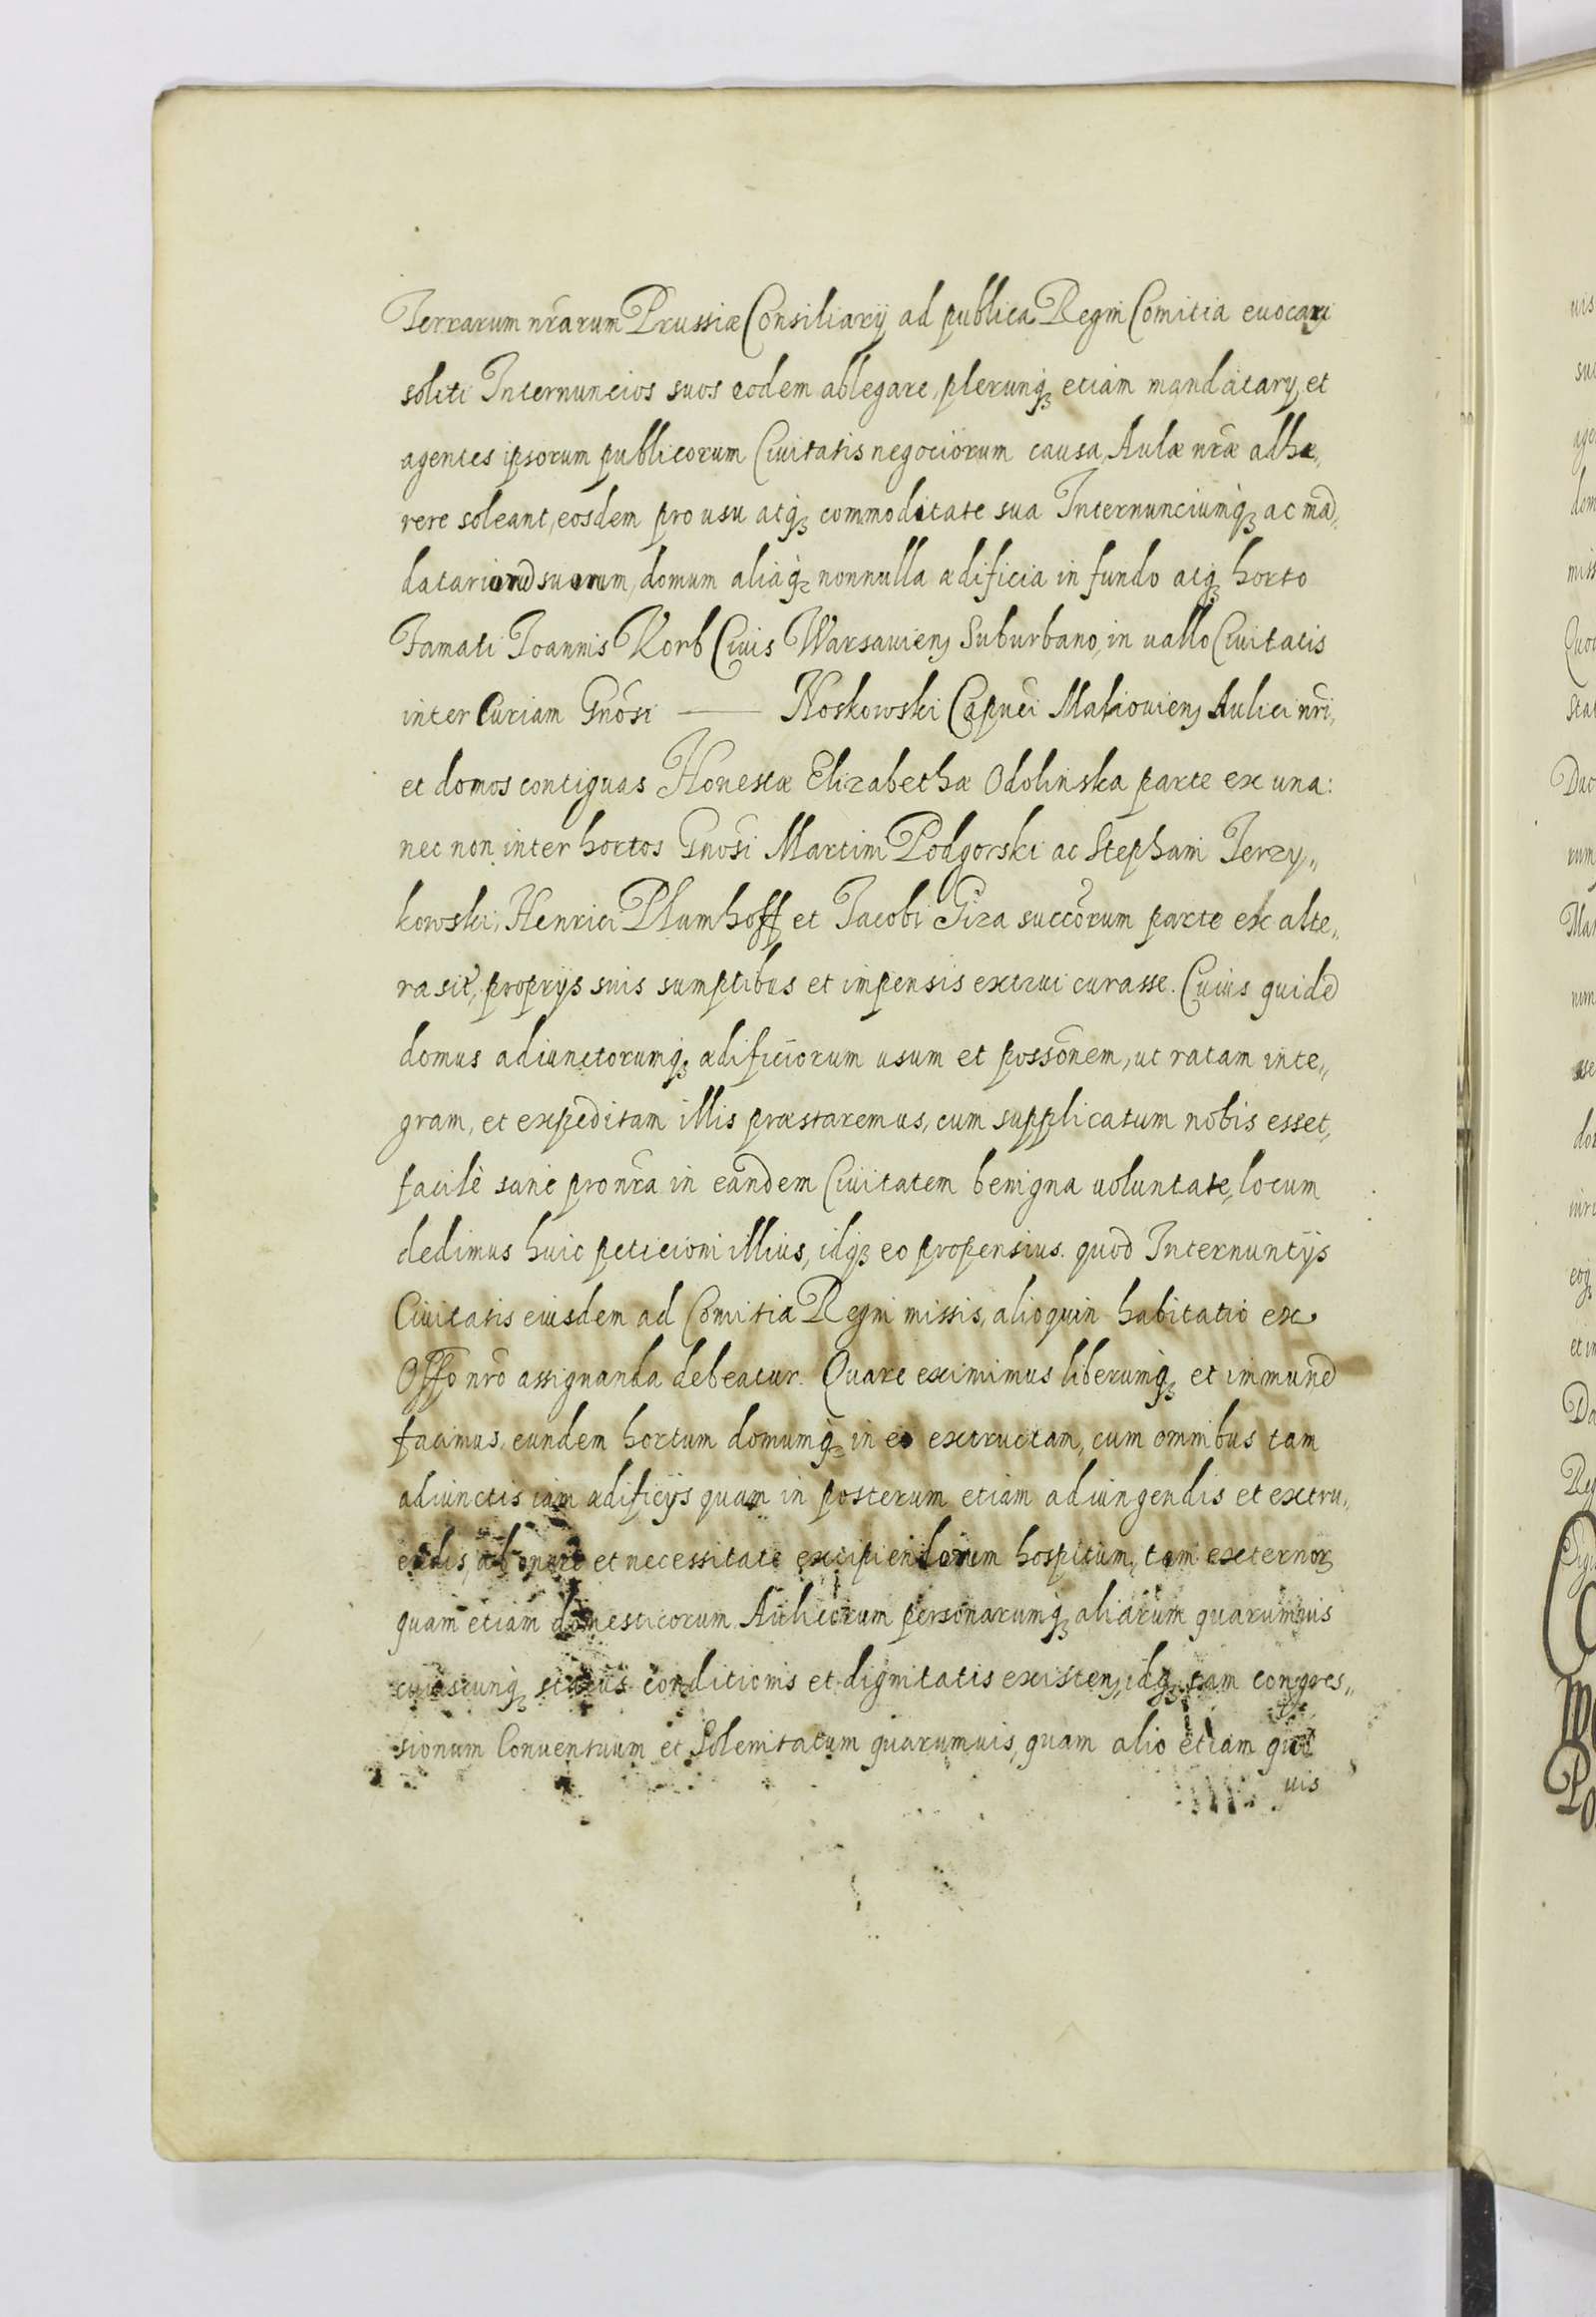 Terrarum nr̃arum Prussiæ Consiliarij ad publica Regni Comitia euocari
soliti Internuncios suos eodem ablegare, plerunq́ꝫ etiam mandatarij et
agentes ipsorum publicorum Ciuitatis negociorum causa, Aulæ nr̃æ adhæ„
rere soleant, eosdem pro usu atq́ꝫ commoditate sua Internunciumq́ꝫ ac mãd„
datariorũ suorum, domum aliaq́ꝫ nonnulla ædificia in fundo atq́ꝫ horto
Famati Joannis Korb Ciuis Warsauienꝫ Suburbano, in uallo Ciuitatis
inter Curiam Gñosi —— Noskowski Capnei Makouienꝫ Aulici nr̃i,
et domos contiguas Honestæ Elizabethæ Odolinska parte ex una:
nec non inter hortos Gñosi Martini Podgorski ac Stephani Jerzy„
kowski, Henrici Plumhoff et Jacobi Giza succõrum parte ex alte„
ra sit̃, proprijs suis sumptibus et impensis extrui curasse. Cuius quidẽ
domus adiunctorumq́ꝫ ædificiorum usum et possõnem, ut ratam inte„
gram, et expeditam illis præstaremus, cum supplicatum nobis esset,
facilè sanè pro nr̃a in eandem Ciuitatem benigna uoluntate, locum
dedimus huic peticioni illius, idq́ꝫ eo propensius. quod Internuntijs
Ciuitatis eiusdem ad Comitia Regni missis, alioquin habitatio ex
Offo nr̃o assignanda debeatur. Quare eximimus liberumq́ꝫ et immunẽ
facimus, eundem hortum domumq́ꝫ in eo extructam, cum omnibus tam
adiunctis iam ædificijs quam in posterum etiam adiungendis et extru„
endis, ab onere et necessitate excipiendorum hospitum, tam externorꝫ
quam etiam domesticorum Aulicorum personarumq́ꝫ aliarum quarumuis
cuiuscunq́ꝫ status conditionis et dignitatis existenꝫ, idq́ꝫ tam congres„
sionum Conuentuum et Solenitatum quarumuis, quam alio etiam quo
uis